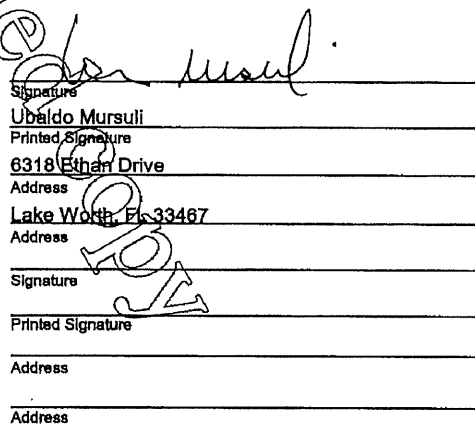 Signature
Ubaldo Mursuli
Printed Signature
6318 Ethan Drive
Address
Lake Worth, FL 33467
Address
Signature
Printed Signature
Address
Address